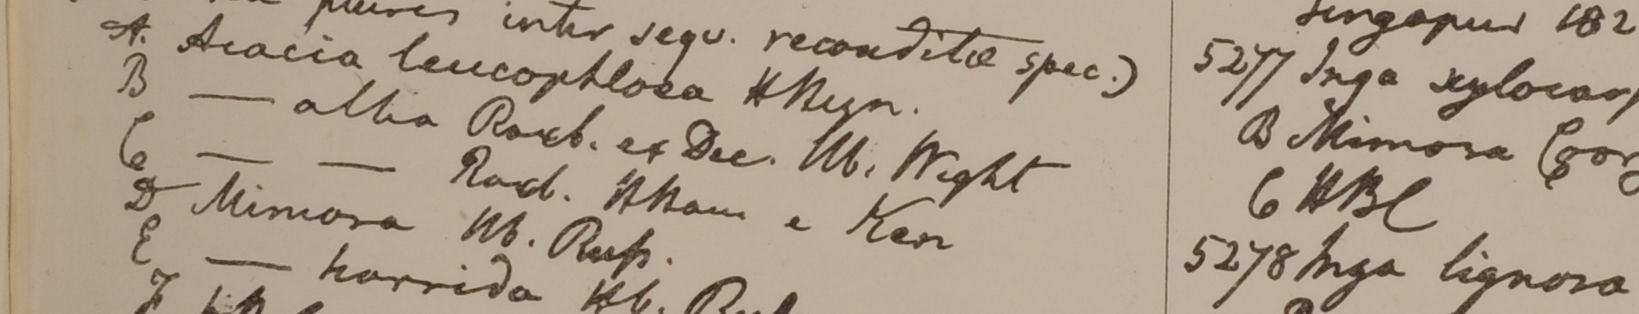 plures inter sequ. reconditæ spec.)
A. Acacia leucophloea HHeyn.
B — alba Roxb. ex Dec. Hb. Wight
C — — Roxb. HHam e Ken
D Mimosa Hb. Russ.
E — horrida Hb. Russ
F
Singapur 182
5277 Inga xylocarp
B Mimosa
C HBC
5278 Inga lignosa